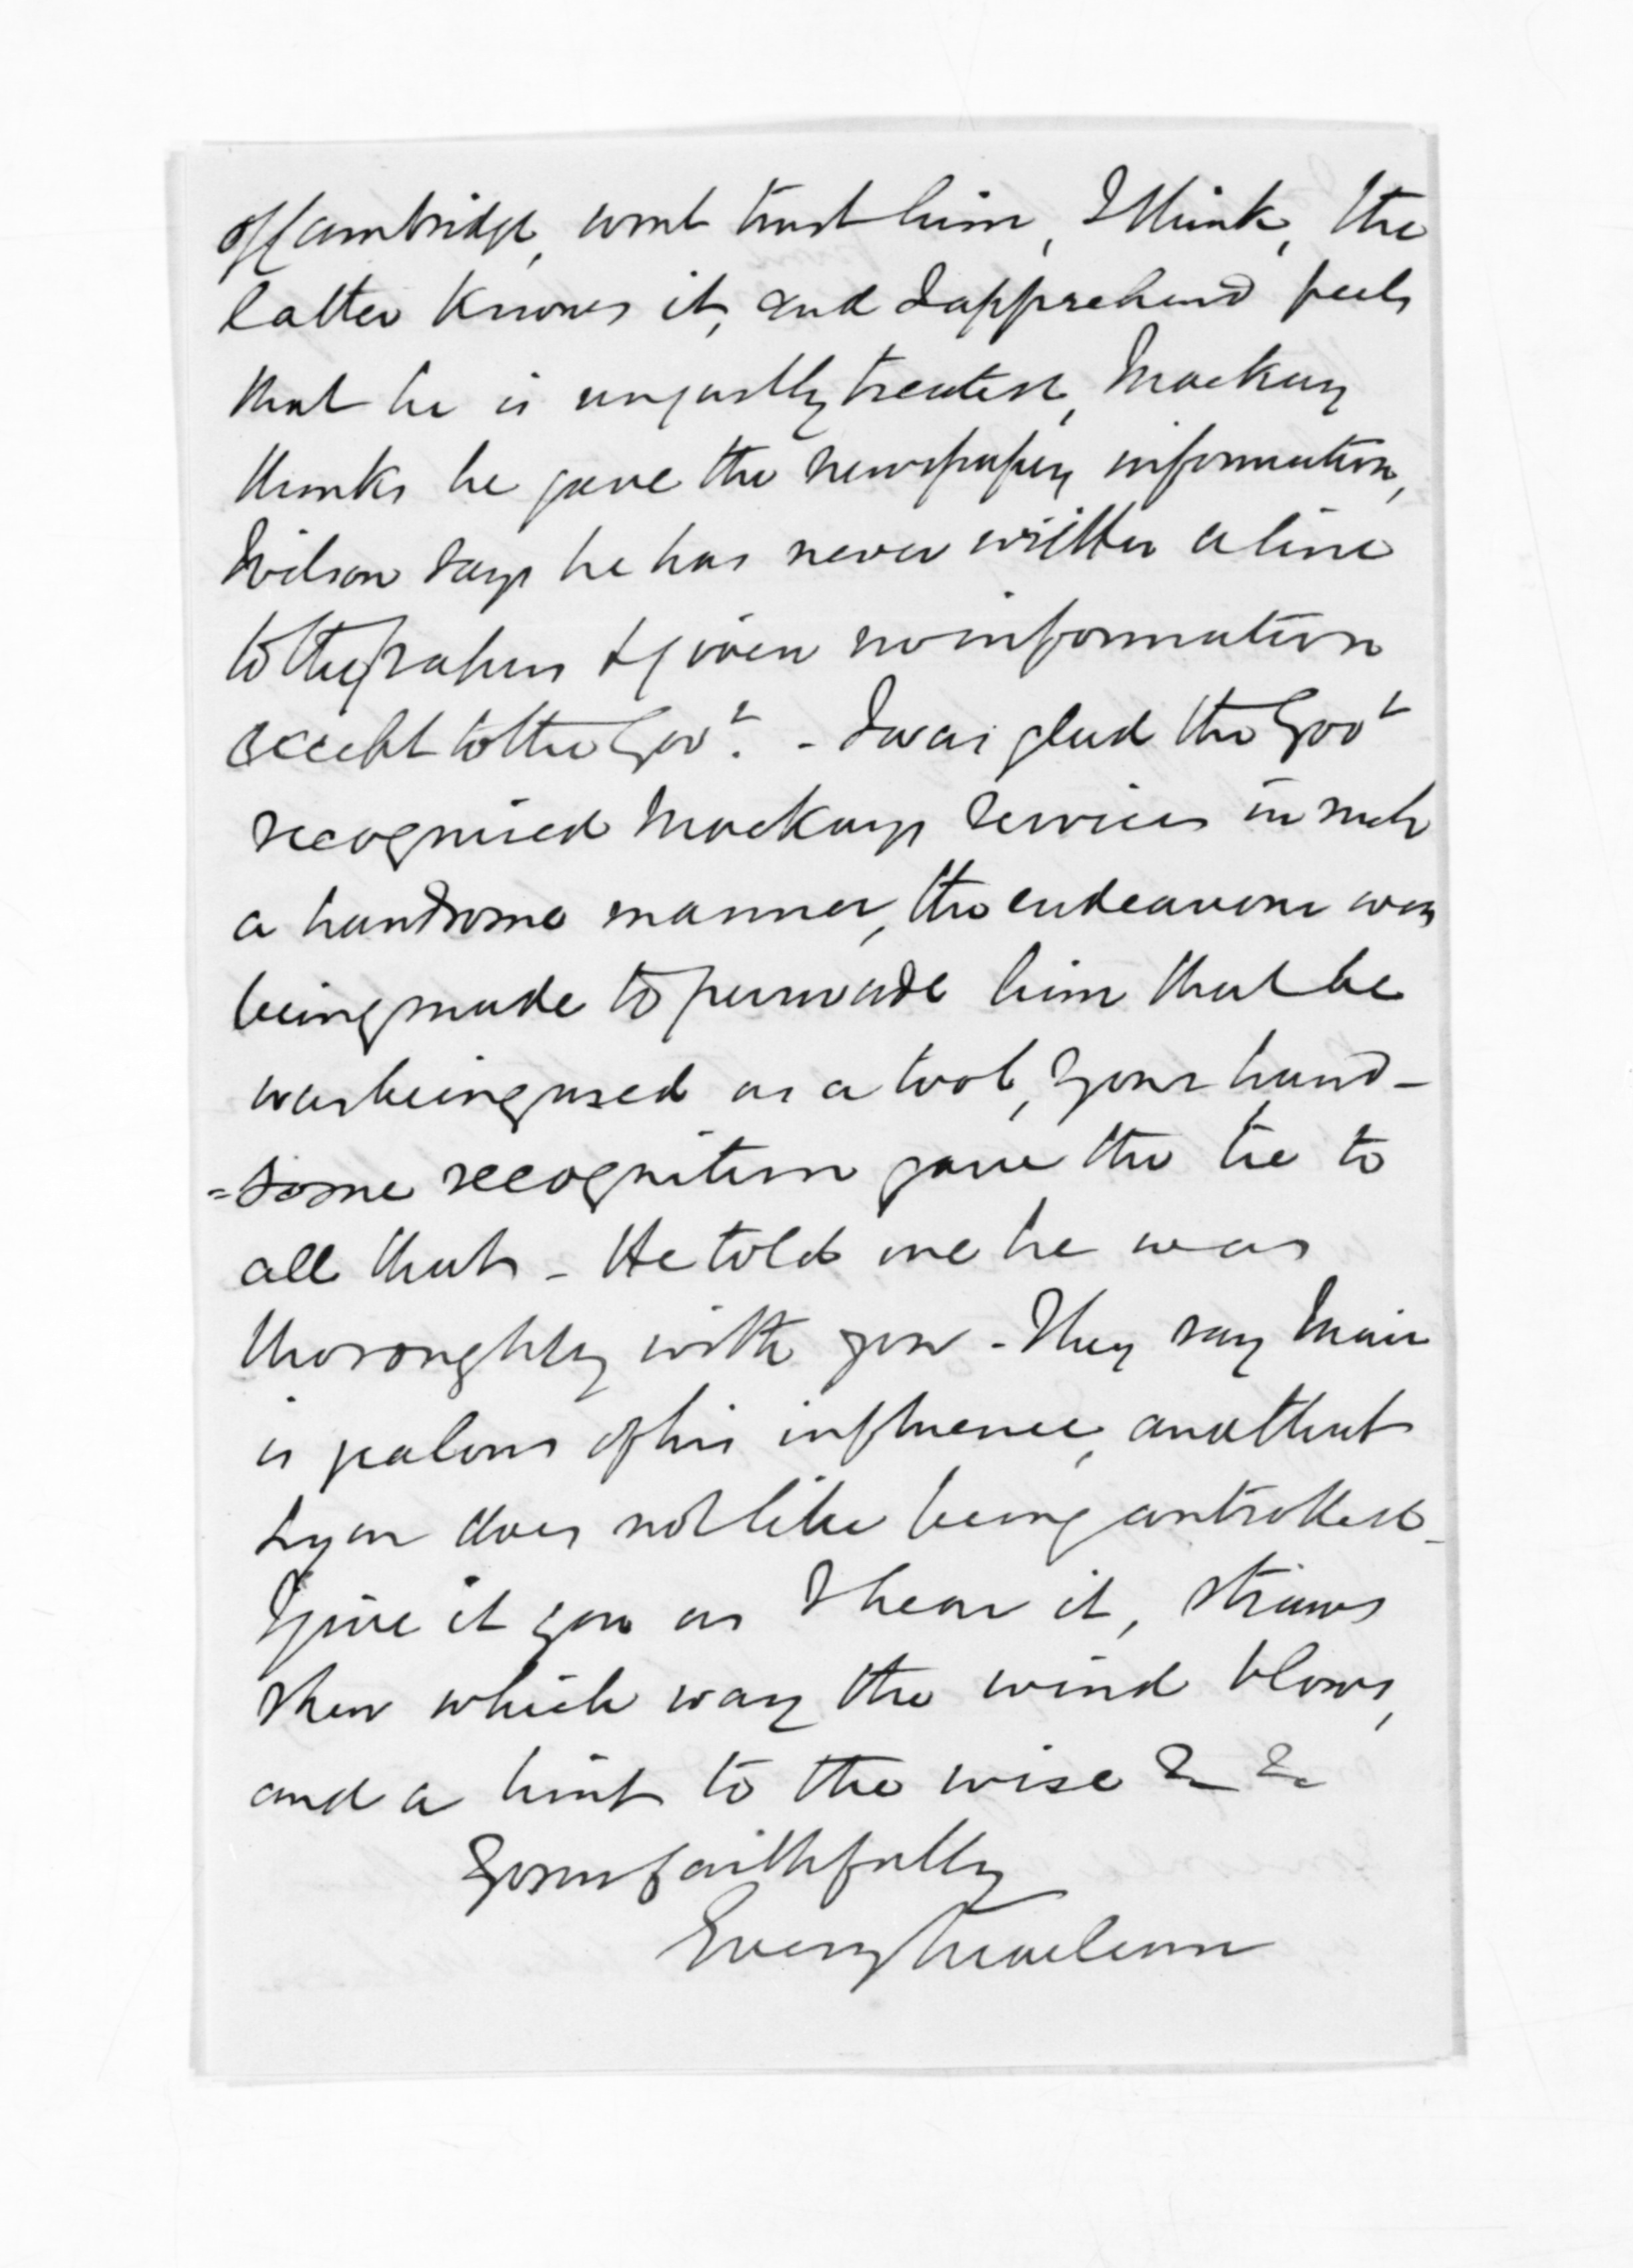 of Cambridge, wont trust him, I think, the
latter knows it, and I apprehend feels
that he is unjustly treated, Mackay
thinks he gave the newspapers information,
Wilson says he has never written a line
to the papers & given no information
except to the Govt. - I was glad the Govt
recognised Mackays services in such
a handsome manner, the endeavour was
being made to persuade him that he
was being used as a tool, your hand-
=some recognition gave the lie to
all that - He told me he was
thoroughly with you - They say Mair
is jealous of his influence, and that
Lyon does not like being controlled -
I give it you as I hear it, straws
shew which way the wind blows,
and a hint to the wise &c &c
Yours faithfully
Every Maclean